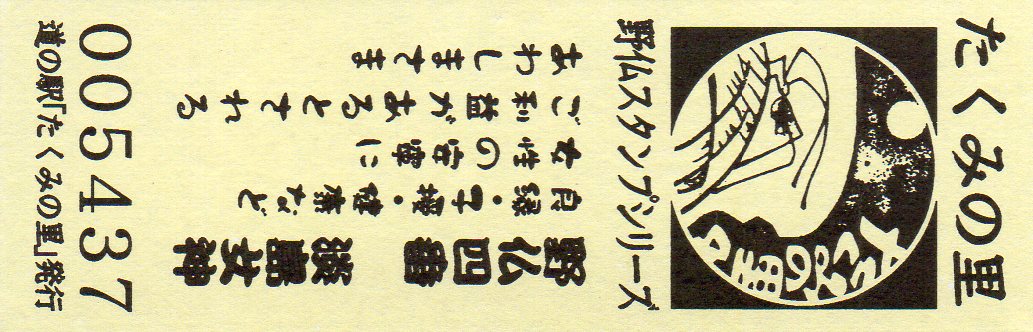 たくみの里
野仏スタンプシリーズ
野仏四番 淡島女神
良縁・子授・健康など
女性の安寧に
ご利益があるとされる
あわしまさま
005437
道の駅「たくみの里」発行